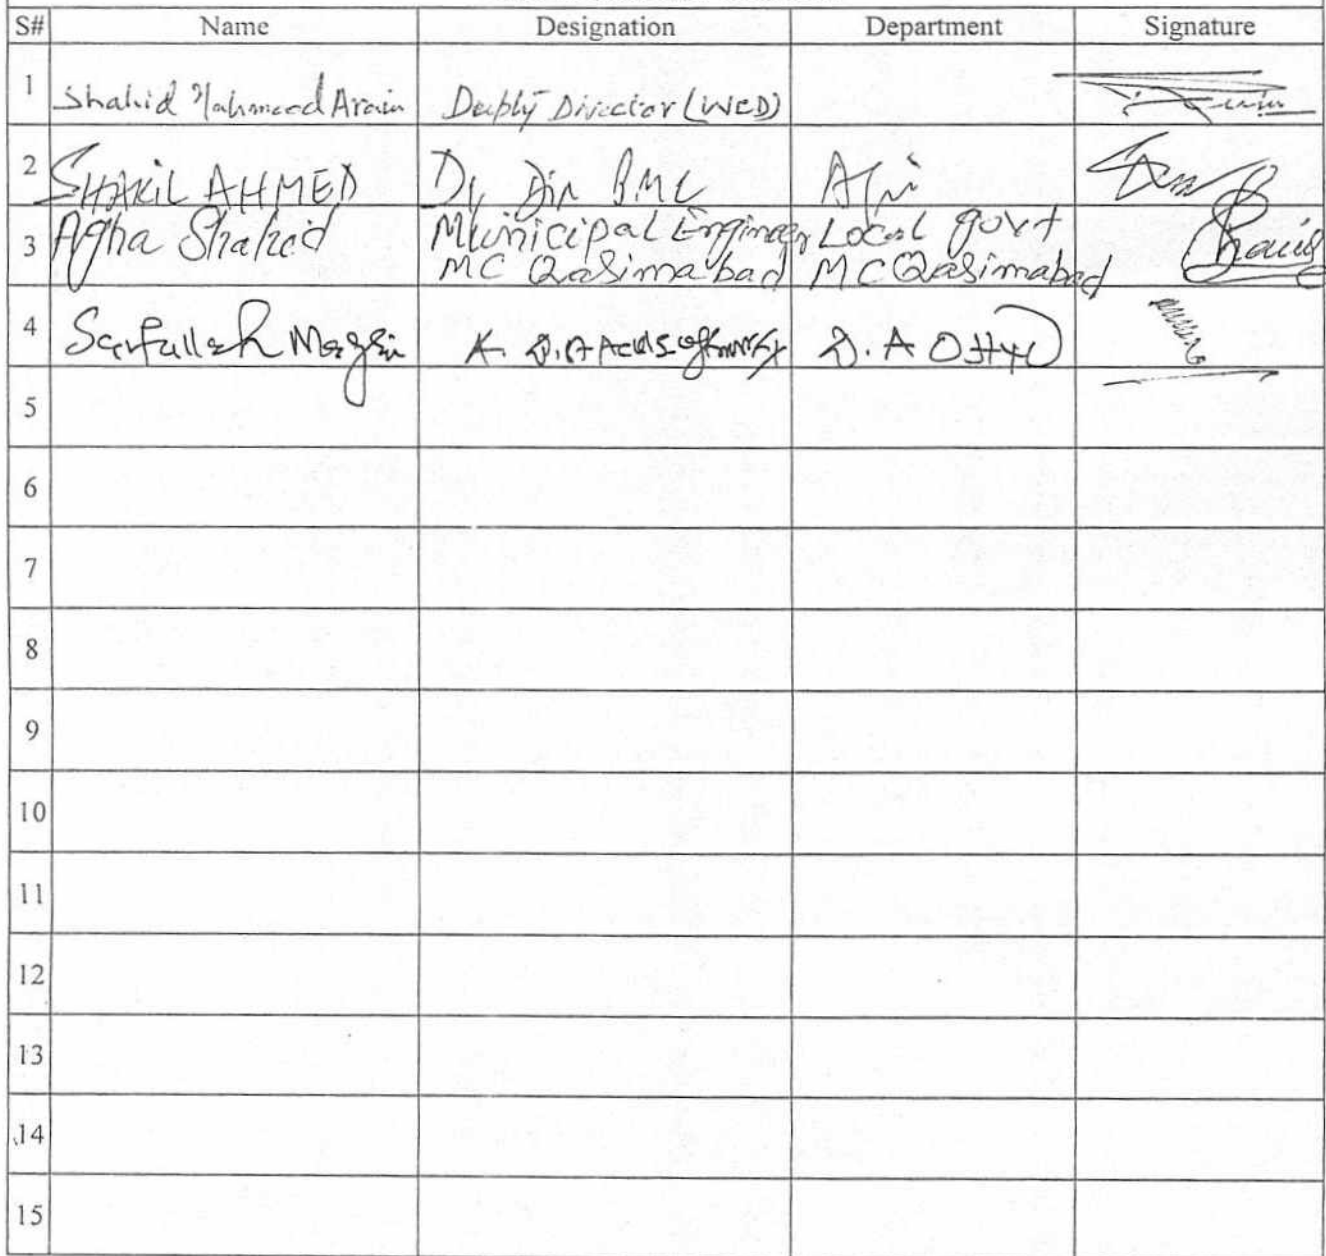 S# Name Designation Department Signature
1 Shahid Mahmood Arain Deputy Director (WED)
2 SHAKIL AHMED Dy Dir
3 Agha Shahid Municipal Engineer Local govt
MC Qasimabad MC Qasimabad
4 D.A O Hyd
5
6
7
8
9
10
11
12
13
14
15